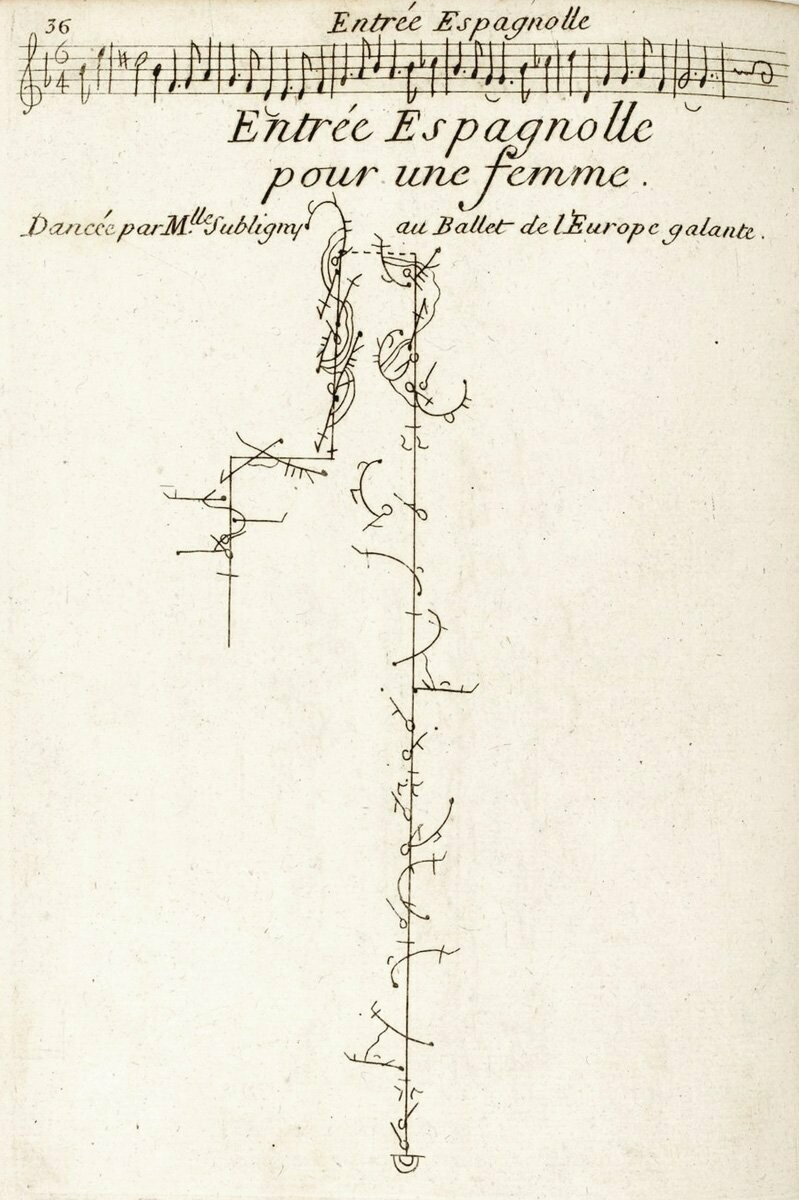 36
Entrée Espagnolle
6
4
Entrée Espagnolle
pour une femme.
Dancée par M.lle Subligny au Ballet de l'Europe galante.